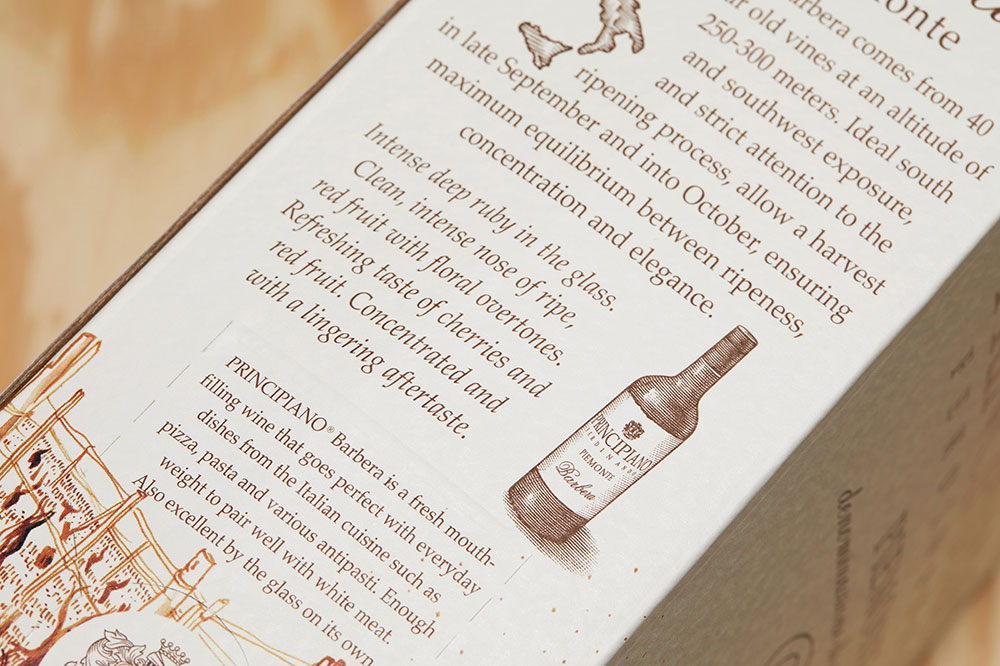 monte
Barbera comes from 40
old vines at an altitude of
250-300 meters. Ideal south
and southwest exposure,
and strict attention to the
ripening process, allow a harvest
in late September and into October, ensuring
maximum equilibrium between ripeness,
concentration and elegance.
Intense deep ruby in the glass.
Clean, intense nose of ripe,
red fruit with floral overtones.
Refreshing taste of cherries and
red fruit. Concentrated and
with a lingering aftertaste.
PRINCIPIANO® Barbera is a fresh mouth-
filling wine that goes perfect with everyday
dishes from the Italian cuisine such as
pizza, pasta and various antipasti. Enough
weight to pair well with white meat.
Also excellent by the glass on its own
PRINCIPIANO
PIEMONTE
Barbera